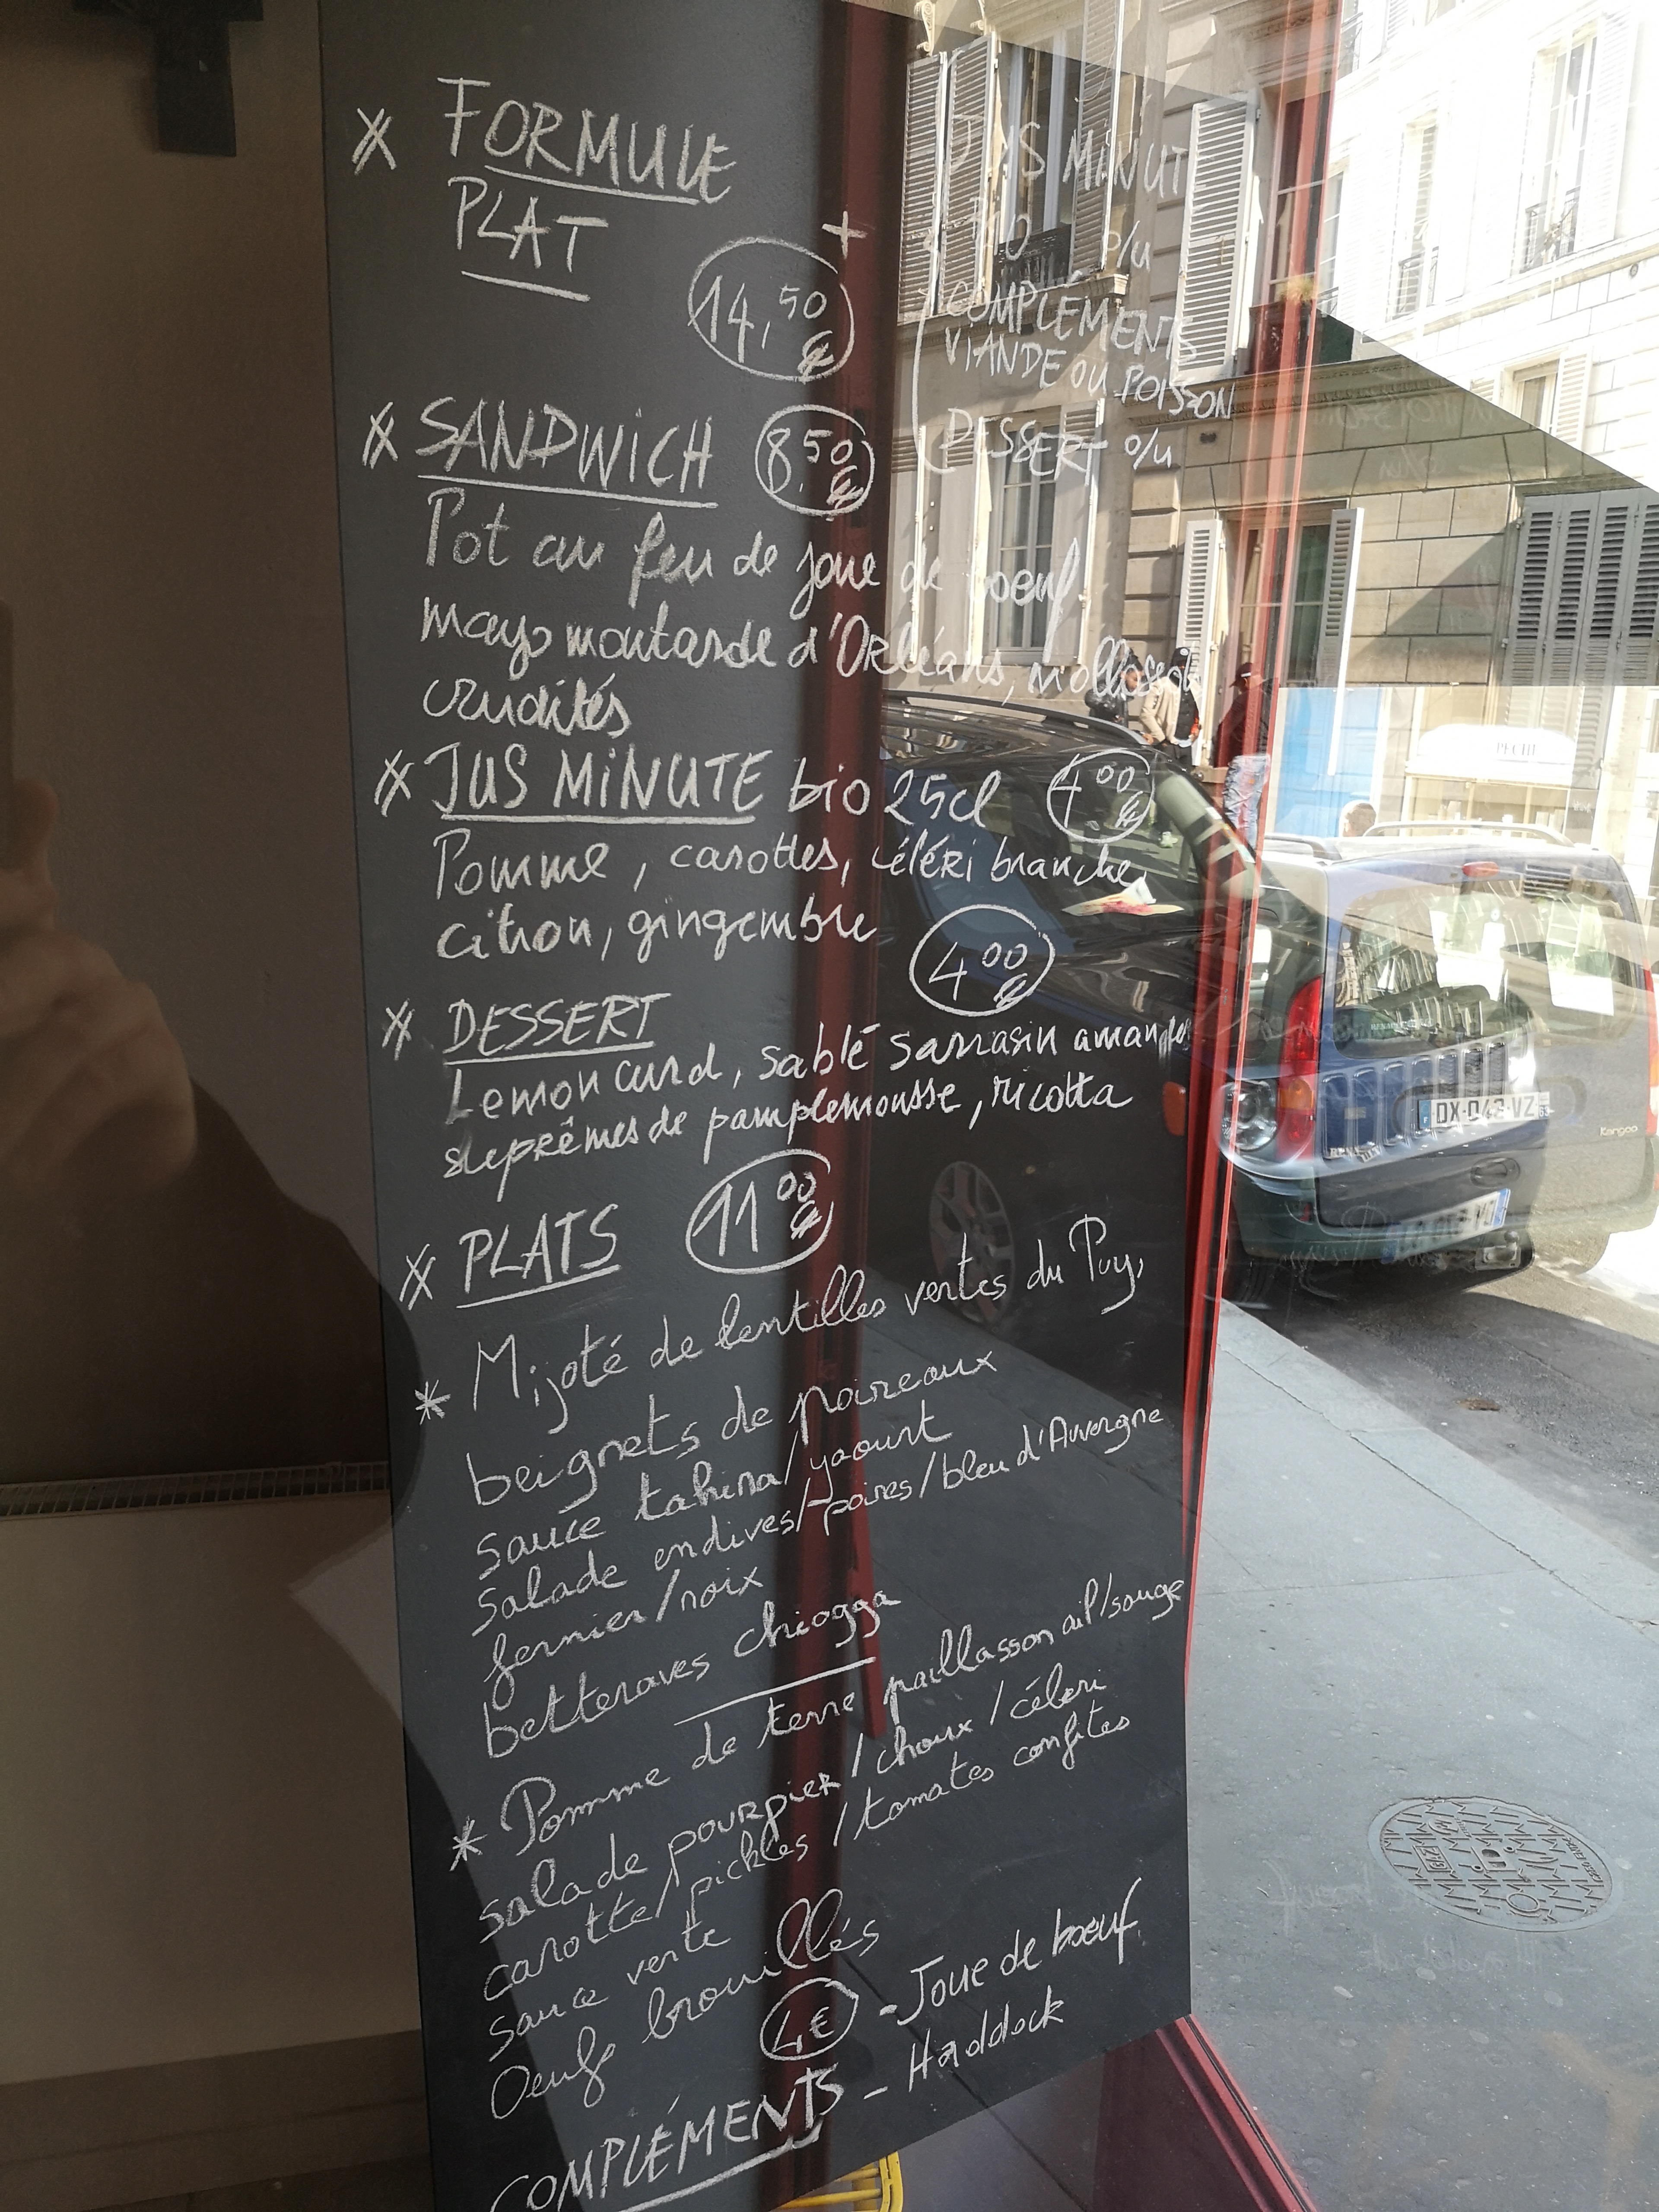 FORMULE
PLAT
+
14,50 €
JUS MINUTE
BIO o/u
COMPLÉMENTS
VIANDE OU POISSON
DESSERT o/u
SANDWICH 8,50 €
Pot au feu de joue de boeuf
mayo moutarde d'Orléans,
crudités
JUS MINUTE bio 25cl 4,00 €
Pomme, carottes, céléri branche,
citron, gingembre
DESSERT 4,00 €
Lemon curd, sablé sarrasin amandes
suprêmes de pamplemousse, ricotta
PLATS 11,00 €
* Mijoté de lentilles vertes du Puy,
beignets de poireaux
sauce tahina/yaourt
Salade endives/poires/bleu d'Auvergne
fermier/noix
betteraves chiogga
* Pomme de terre paillasson ail/sauge
salade pourpier/choux/céleri
carotte/pickles/tomates confites
sauce verte
Oeufs brouillés
COMPLÉMENTS 4€ - Joue de boeuf
- Haddock
PECHE
DX-043-VZ
63
Kangoo